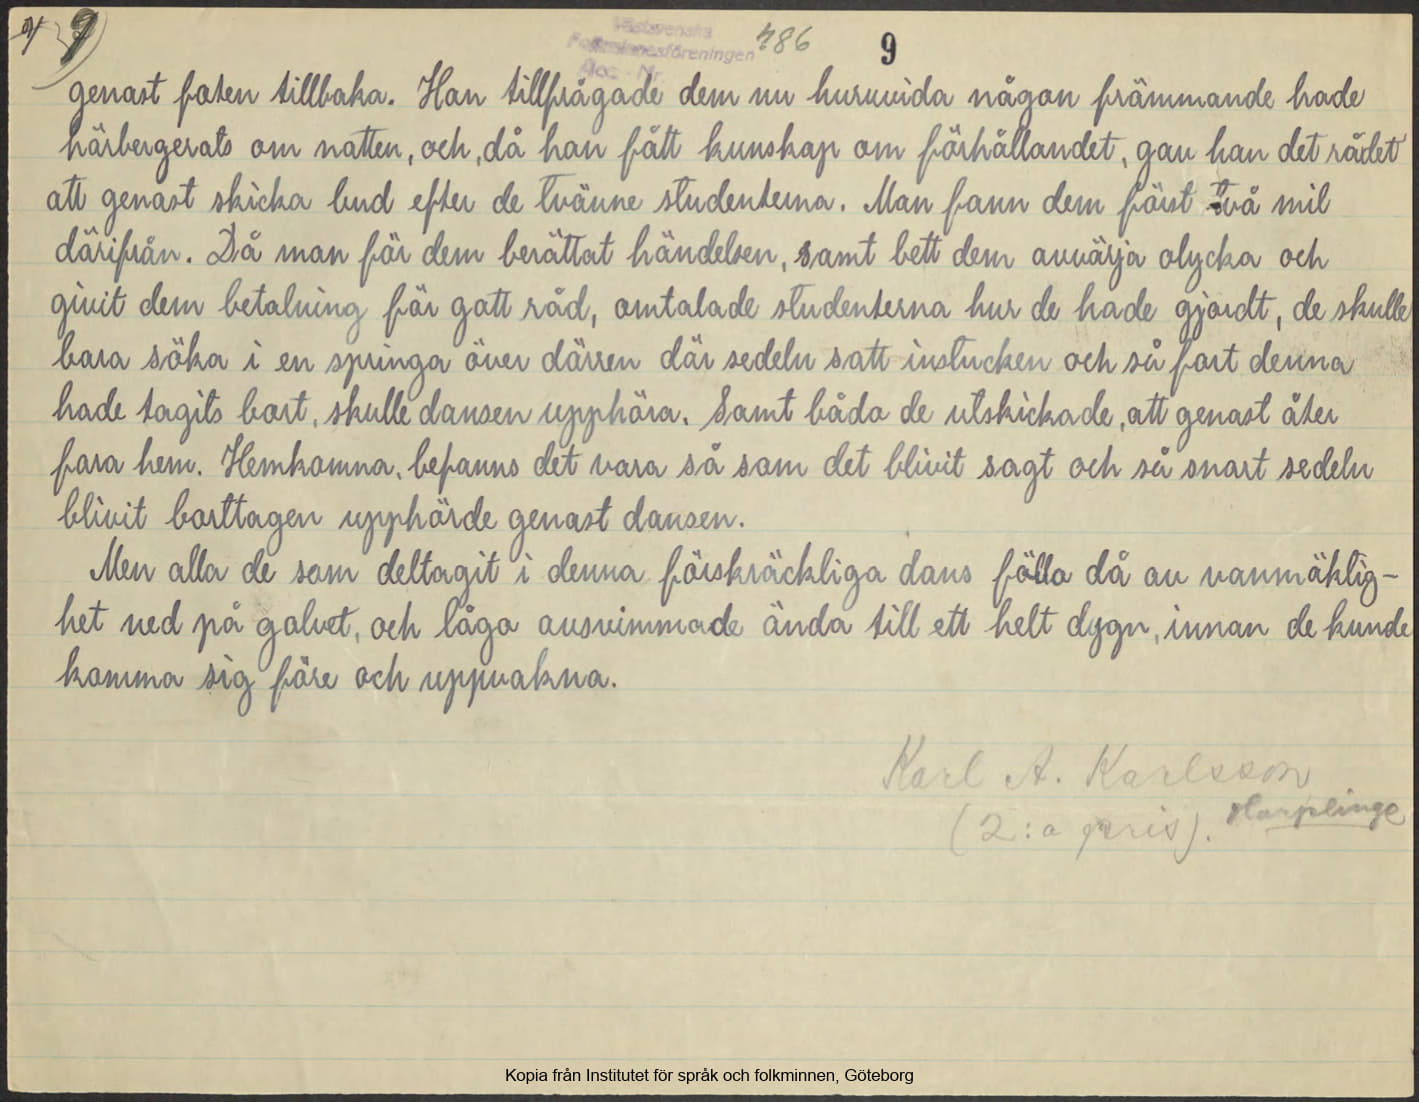 9
Västsvenska
Folkminnesföreningen 486
Acc. Nr.
9
genast foten tillbaka. Han tillfrågade dem nu huruvida någon främmande hade
härbergerats om natten, och, då han fått kunskap om förhållandet, gav han det rådet
att genast skicka bud efter de tvänne studenterna. Man fann dem först två mil
därifrån. Då man för dem berättat händelsen, samt bett dem avvärja olycka och
givit dem betalning för gott råd, omtalade studenterna hur de hade gjordt, de skulle
bara söka i en springa över dörren där sedeln satt instucken och så fort denna
hade tagits bort, skulle dansen upphöra. Samt bådo de utskickade, att genast åter
fara hem. Hemkomna, befanns det vara så som det blivit sagt och så snart sedeln
blivit borttagen upphörde genast dansen.
Men alla de som deltagit i denna förskräckliga dans föllo då av vanmäktig-
het ned på golvet, och lågo avsvimmade ända till ett helt dygn, innan de kunde
komma sig före och uppvakna.
Karl A. Karlsson
(2:a pris). Harplinge
Kopia från Institutet för språk och folkminnen, Göteborg